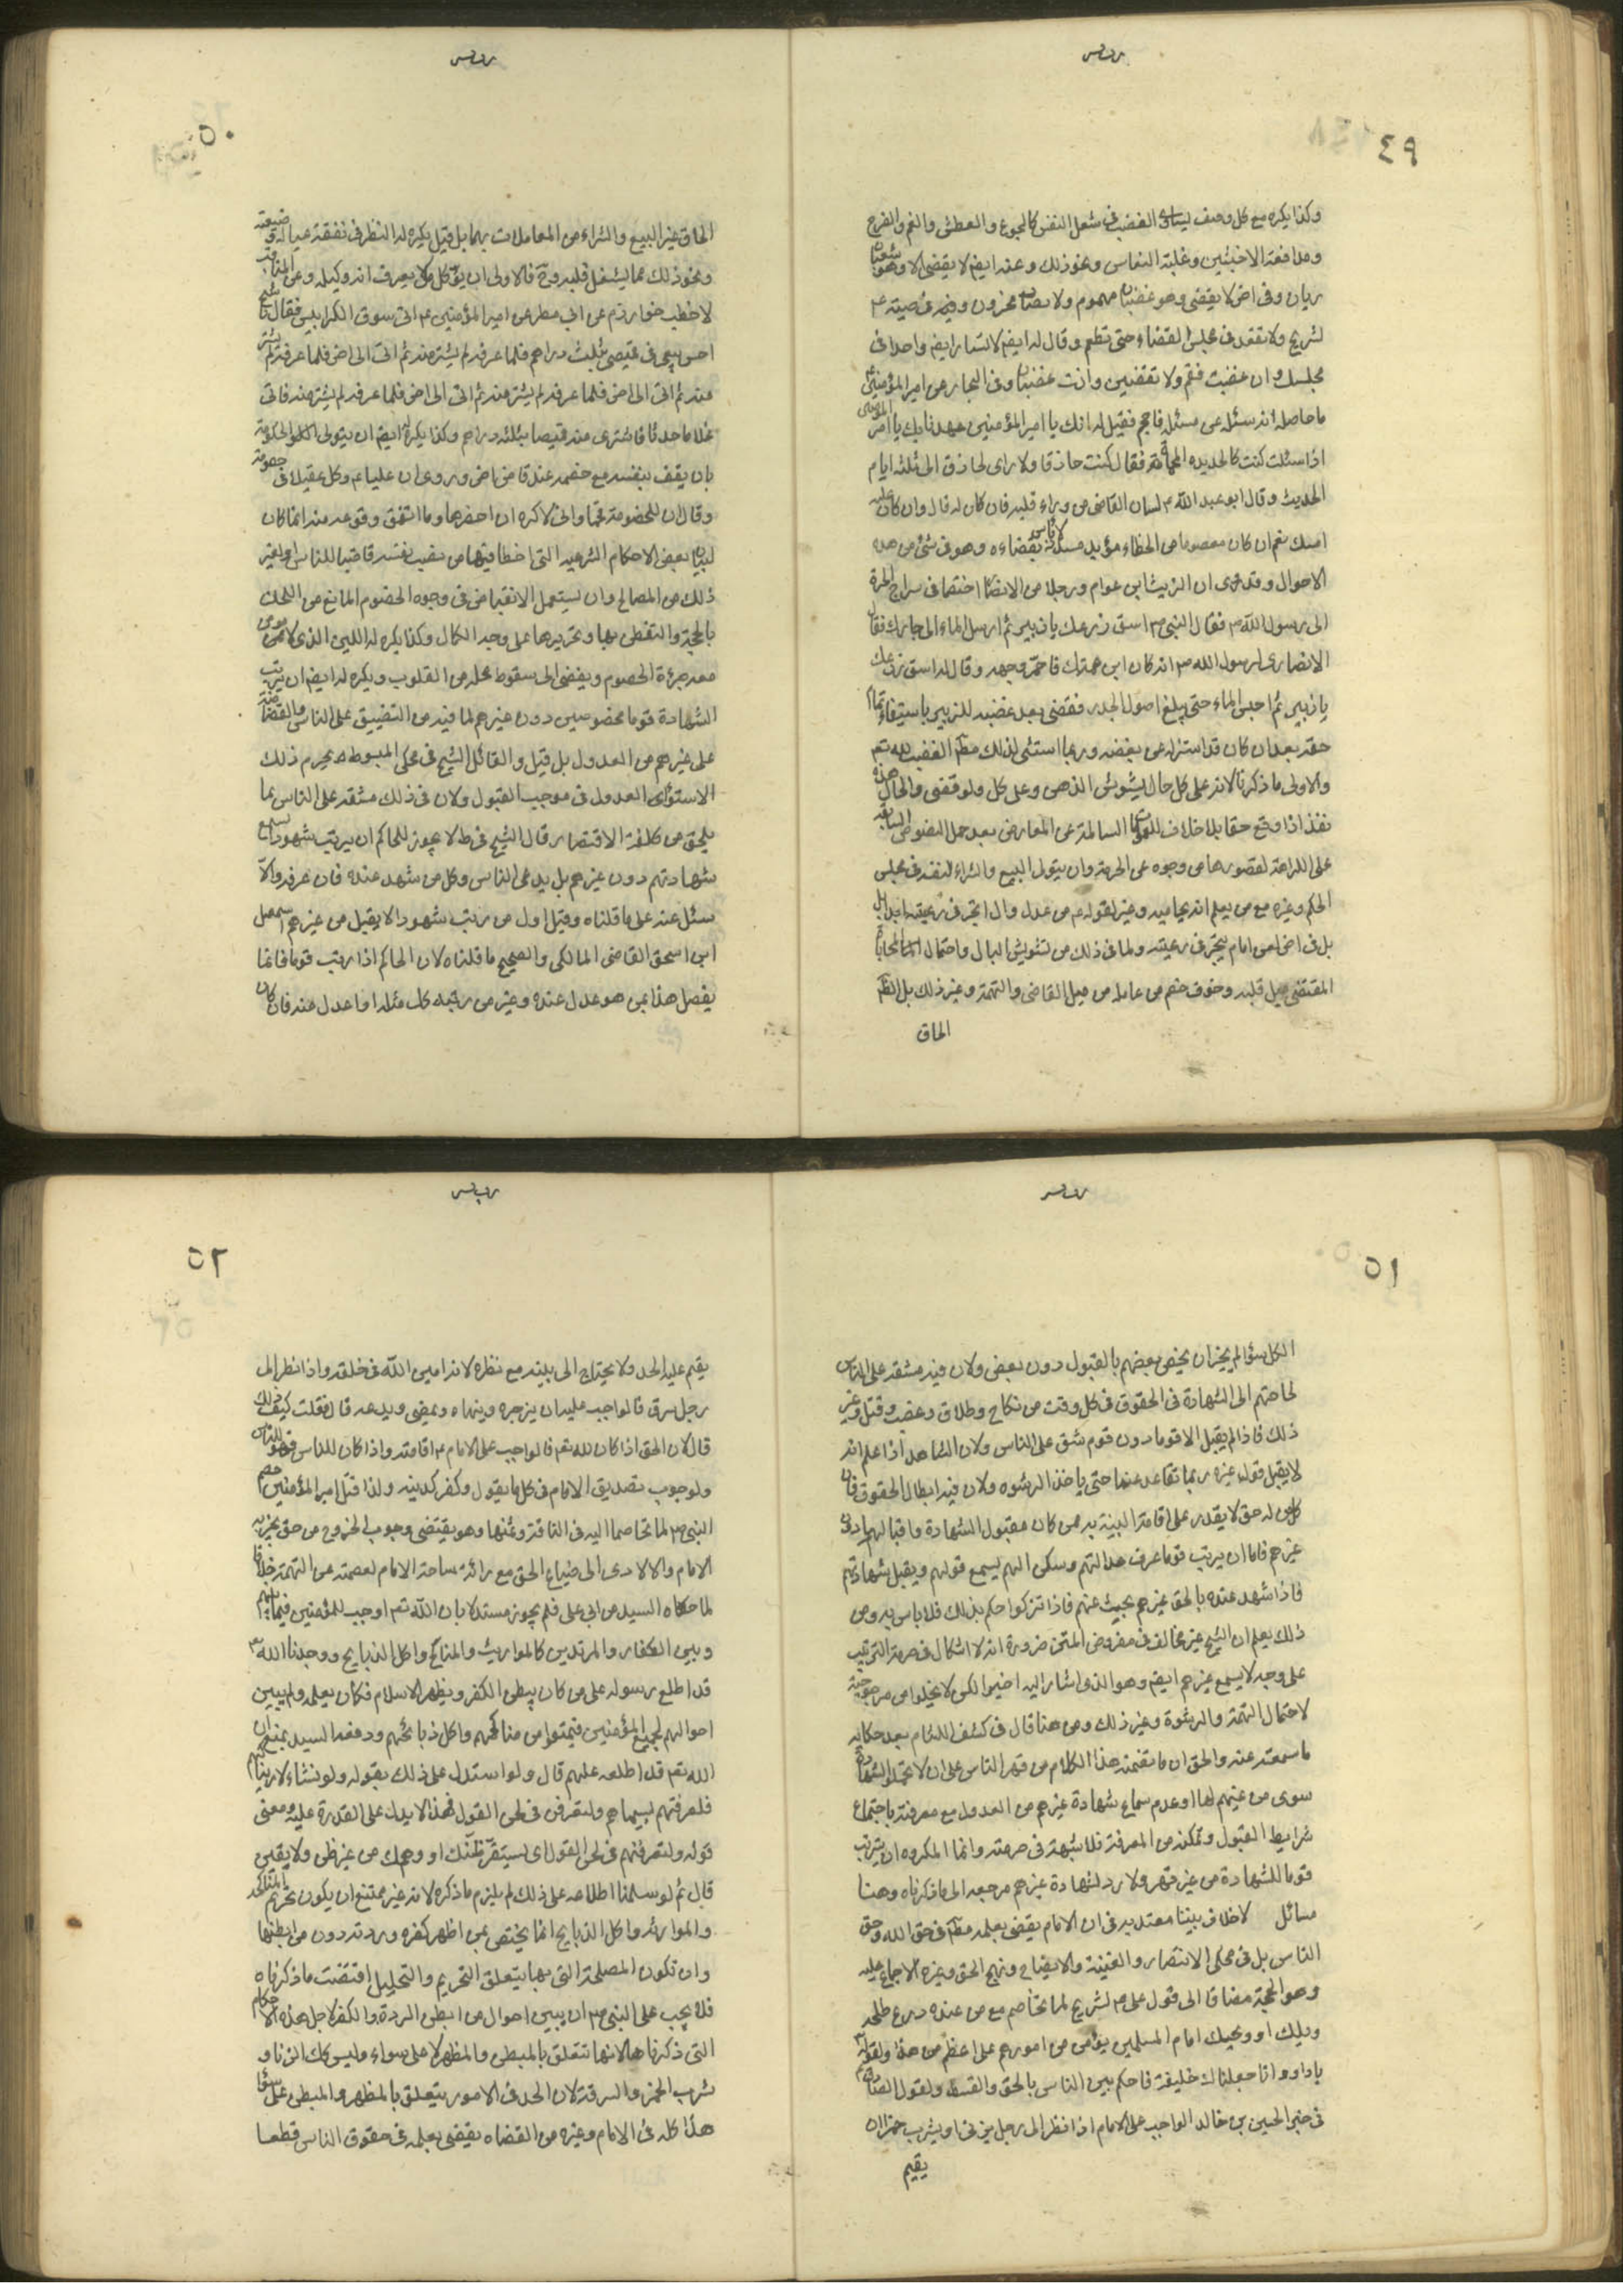 ٤٩
وكذا يكره مع كل وصف يساوى الغضب فى شغل النفس كالجوع والعطش والغم والفرح
ومدافعة الاخبثين وغلبة النعاس ونحو ذلك وعنه ايضا لا يقضى الا وهو شبعان
ريان وفى اخر لا يقضى وهو غضبان مهموم ولا مصاب محزون وفى وصيته ع
لشريح ولا تقعد فى مجلس القضاء حتى تطعم وقال له ايضا لا تشار ايضا واحدا فى
مجلسك وان غضبت فقم ولا تقضين وانت غضبان وفى البحار عن امير المؤمنين
ما حاصله انه سئل عن مسئلة فقيل له انك يا امير المؤمنين عهدناك يا امير المؤمنين
اذا سئلت كنت كالحديدة المحماة فقال كنت حاقنا ولا راى لحاقن الى ثلثه ايام
الحديث وقال ابو عبد الله ع لسان القاضى من وراء قلبه فان كان له قال وان كان عليه
امسك نعم ان كان معصوما من الخطاء مؤيد مسدد لا باس بقضاءه وهو فى شئ من هذه
الاحوال وقد روى ان الزبير ابن عوام ورجلا من الانصار اختصما فى سراج الحرة
الى رسول الله ص فقال النبى ص اسق زرعك يا زبير ثم ارسل الماء الى جارك فقال
الانصارى لرسول الله ص انه كان ابن عمتك فاحمر وجهه وقال له اسق زرعك
يا زبير ثم احبس الماء حتى يبلغ اصول الجدر فقضى بعد غضبه للزبير باستيفاء تمام
حقه بعد ان كان قد استنزله عن بعضه وربما استثنى لذلك مطم الغضب لله تعم
والاولى ما ذكرنا لانه على كل حال يشوش الذهن وعلى كل ولو قضى والحال هذه
نفذ اذا وقع حقا بلا خلاف للعمومات السالمة عن المعارض بعد حمل النصوص السابقة
على الكراهة لقصورها من وجوه عن الحرمة وان يتولى البيع والشراء لنفسه فى مجلس
الحكم وغيره مع من يعلم انه يحابيه وغيره لقوله ع ما عدل وال اتجر فى رعيته ابدا بل
بل فى اخر لعن امام يتجر فى رعيته ولما فى ذلك من تشويش البال واحتمال المحاباة
المقتضى ميل قلبه وخوف خصم من عامله من ميل القاضى والتهمة وغير ذلك بل الظم
الحاق
٥٠
الحاق غير البيع والشراء من المعاملات بهما بل قيل يكره له النظر فى نفقة عياله وضيعته
ونحو ذلك مما يشغل قلبه وح فالاولى ان يوكل من لا يعرف انه وكيله وعن المناقب
لاخطب خوارزم عن ابى مطر عن امير المؤمنين ع اتى سوق الكرابيس فقال يا شيخ
احسن بيعى فى قميصى بثلث دراهم فلما عرفه لم يشتر منه ثم اتى الى اخر فلما عرفه لم يشتر
منه ثم اتى الى اخر فلما عرفه لم يشتر منه ثم اتى الى اخر فلما عرفه لم يشتر منه فاتى
غلاما حدثا فاشترى منه قميصا بثلثه دراهم وكذا يكره ايضا ان يتولى الحكومة
بان يقف بنفسه مع خصمه عند قاض اخر وروى ان عليا ع وكل عقيلا فى خصومة
وقال ان للخصومة قحما وانى لاكره ان احضرها وما اتفق وقوعه منه انما كان
لبيان بعض الاحكام الشرعية التى اخطا فيها من نصب نفسه قاضيا للناس او لغير
ذلك من المصالح وان يستعمل الانقباض فى وجوه الخصوم المانع من اللحن
بالحجة والتفطن بها وتحريرها على وجه الكمال وكذا يكره له اللين الذى لا يؤمن
معه جرءة الخصوم ويفضى الى سقوط محله من القلوب ويكره له ايضا ان يرتب
للشهادة قوما مخصوصين دون غيرهم لما فيه من التضييق على الناس والغضاضة
على غيرهم من العدول بل قيل والقائل الشيخ فى محكى المبسوط يحرم ذلك
لاستواء العدول فى موجب القبول ولان فى ذلك مشقة على الناس بما
يلحق من كلفة الاقتصار قال الشيخ فى ط لا يجوز للحاكم ان يرتب شهودا يسمع
شهادتهم دون غيرهم بل يدع الناس وكل من شهد عنده فان عرفه والا
سئل عنه على ما قلناه وقيل اول من رتب شهودا لا يقبل من غيرهم اسمعيل
ابن اسحق القاضى المالكى والصحيح ما قلناه لان الحاكم اذا رتب قوما فانما
يفعل هذا بمن هو عدل عنده وغير من رتبه كك مثله او اعدل منه فان كان
٥١
الكل سواء لم يجز ان يخص بعضهم بالقبول دون بعض ولان فيه مشقة على الناس
لحاجتهم الى الشهادة فى الحقوق فى كل وقت من نكاح وطلاق وغصب وقتل وغير
ذلك فاذا لم يقبل الا قوما دون قوم شق على الناس ولان الشاهد اذا علم انه
لا يقبل قول غيره ربما تقاعد عنها حتى ياخذ الرشوه ولان فيه ابطال الحقوق فان
كل من له حق لا يقدر على اقامة البينة به من كان مقبول الشهادة واقبالها دون
غيرهم فاما ان يرتب قوما عرف عدالتهم وسكن اليهم يسمع قولهم ويقبل شهادتهم
فاذا شهد عنده بالحق غيرهم بحث عنهم فاذا تزكوا حكم بذلك فلا باس به ومن
ذلك يعلم ان الشيخ غير مخالف فى مفروض المتن ضرورة انه لا اشكال فى حرمة الترتيب
على وجه لا يسمع غيرهم ايضا وهو الذى اشار اليه اخيرا لكن لا يخلوا من مرجوحية
لاحتمال التهمة والرشوة وغير ذلك ومن هنا قال فى كشف اللثام بعد حكايه
ما سمعته عنه والحق ان ما تضمنه هذا الكلام من قهر الناس على ان لا تحملوا الشهادة
سوى من عينهم لها او عدم سماع شهادة غيرهم من العدول مع معرفته باجتماع
شرايط القبول وتمكنه من المعرفة فلا شبهة فى حرمته وانما المكروه ان يترتب
قوما للشهادة من غير قهر ولا رد لشهادة غيرهم مرجعه الى ما ذكرناه وهنا
مسائل لا خلاف بيننا معتد به فى ان الامام يقضى بعلمه مطم فى حق الله وحق
الناس بل فى محكى الانتصار والغنية والايضاح ونهج الحق وغيره الاجماع عليه
وهو الحجة مضافا الى قول على ع لشريح لما تخاصم مع من عنده درع طلحه
ويلك او ويحك امام المسلمين يؤمن من امورهم على اعظم من هذا ولقوله تع
يا داود انا جعلناك خليفة فاحكم بين الناس بالحق والقسط ولقول الصادق ع
فى خبر الحسين بن خالد الواجب على الامام اذا نظر الى رجل يزنى او يشرب خمرا ان
يقيم
٥٢
يقيم عليه الحد ولا يحتاج الى بينه مع نظره لانه امين الله فى خلقه واذا نظر الى
رجل سرق فالواجب عليه ان يزجره وينهاه ويمضى ويدعه قال فقلت كيف ذلك
قال لان الحق اذا كان لله تعم فالواجب على الامام ع اقامته واذا كان للناس فهو للناس
ولوجوب تصديق الامام فى كل ما يقول وكفر مكذبه ولذا قتل امير المؤمنين خصم
النبى ص لما تخاصما اليه فى الناقة وثمنها وهو يقتضى وجوب الخروج من حق يخبر به
الامام والا لادى الى ضياع الحق مع برائة ساحة الامام لعصمته عن التهمة خلافا
لما حكاه السيد عن ابى على فلم يجوزه مستدلا بان الله تعم اوجب للمؤمنين فيما بينهم
وبين الكفار والمرتدين كالمواريث والمناكح واكل الذبايح ووجدنا الله تع
قد اطلع رسوله على من كان يبطن الكفر ويظهر الاسلام فكان يعلمه ولم يبين
احوالهم لجميع المؤمنين فيمتنعوا من مناكحهم واكل ذبائحهم ودفعه السيد بمنع ان
الله تعم قد اطلعه عليهم قال ولو استدل على ذلك بقوله ولو نشاء لاريناكهم
فلعرفتهم بسيماهم ولتعرفن فى لحن القول فهذا لا يدل على القدرة عليه ومعنى
قوله ولتعرفنهم فى لحن القول اى يستقر ظنك او وهمك من غير ظن ولا يقين
قال ثم لو سلمنا اطلاعه على ذلك لم يلزم ما ذكره لانه غير ممتنع ان يكون تحريم المناكحه
والموارثه واكل الذبايح انما يختص بمن اظهر كفره وردته دون من ابطنها
وان تكون المصلحة التى بها يتعلق التحريم والتحليل اقتضت ما ذكرناه
فلا يجب على النبى ص ان يبين احوال من ابطن الردة والكفر لاجل هذه الاحكام
التى ذكرناها لانها تتعلق بالمبطن والمظهر لا على سواء وليس كك الزنا و
شرب الخمر والسرقة لان الحد فى الامور يتعلق بالمظهر والمبطن على سواء
هذا كله فى الامام وغيره من القضاه يقضى بعلمه فى حقوق الناس قطعا